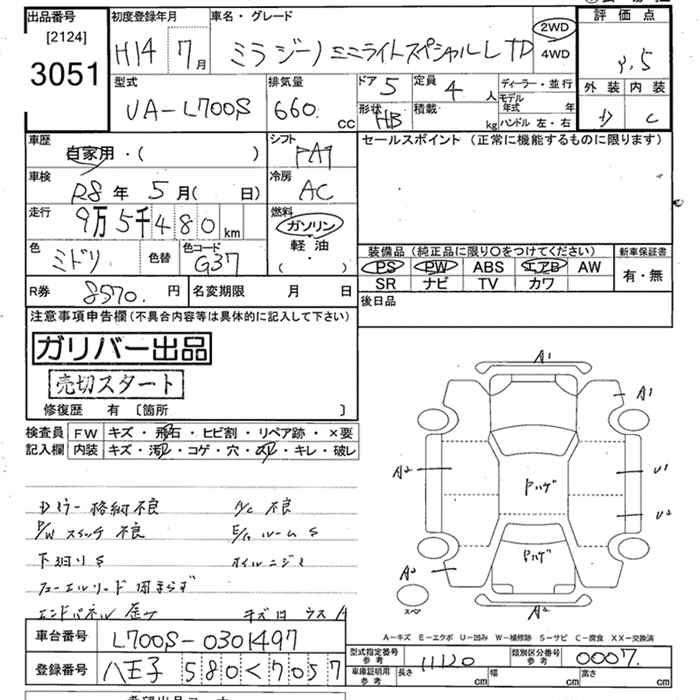 出品番号 初度登録年月 車名・グレード 評価点
[2124]
3051 H14 7月 ミラジーノ ミニライトスペシャルL TD 2WD 4WD
型式 排気量 ドア 5 定員 4人 ディーラー・並行 外装 内装
UA-L700S 660. cc 形状 HB 積載 kg モデル年式 年 D C
ハンドル 左・右
車歴 シフト セールスポイント(正常に機能するものに限ります)
自家用・( ) FAT
車検 R8年 5月( 日) 冷房 AC
走行 9万5千480km 燃料 ガソリン
軽油
( ・ )
色 ミドリ 色替 色コード G37
装備品(純正品に限り○をつけてください) 新車保証書
PS PW ABS エアB AW 有・無
SR ナビ TV カワ
R券 8570.円 名変期限 月 日 後日品
注意事項申告欄(不具合内容等は具体的に記入して下さい)
ガリバー出品
売切スタート
修復歴 有 〔箇所 〕
検査員 FW キズ・飛石・ヒビ割・リペア跡・×要
記入欄 内装 キズ・汚レ・コゲ・穴・スレ・キレ・破レ
Dミラー格納不良 A/C 不良
P/Wスイッチ 不良 E/gルーム S
下廻り S オイルニジミ
フューエルリード 閉まらず
エンドパネル 歪 キズ凹 ウス A
A1
A1
A2 Pハゲ U1
U2
Pハゲ
A2
スペア A2
A-キズ E-エクボ U-凹み W-補修跡 S-サビ C-腐食 XX-交換済
車台番号 L700S-0301497
登録番号 八王子 580く7057
型式指定番号 参考 11120 類別区分番号 参考 0007.
車庫証明用 参考 長さ cm 幅 cm 高さ cm